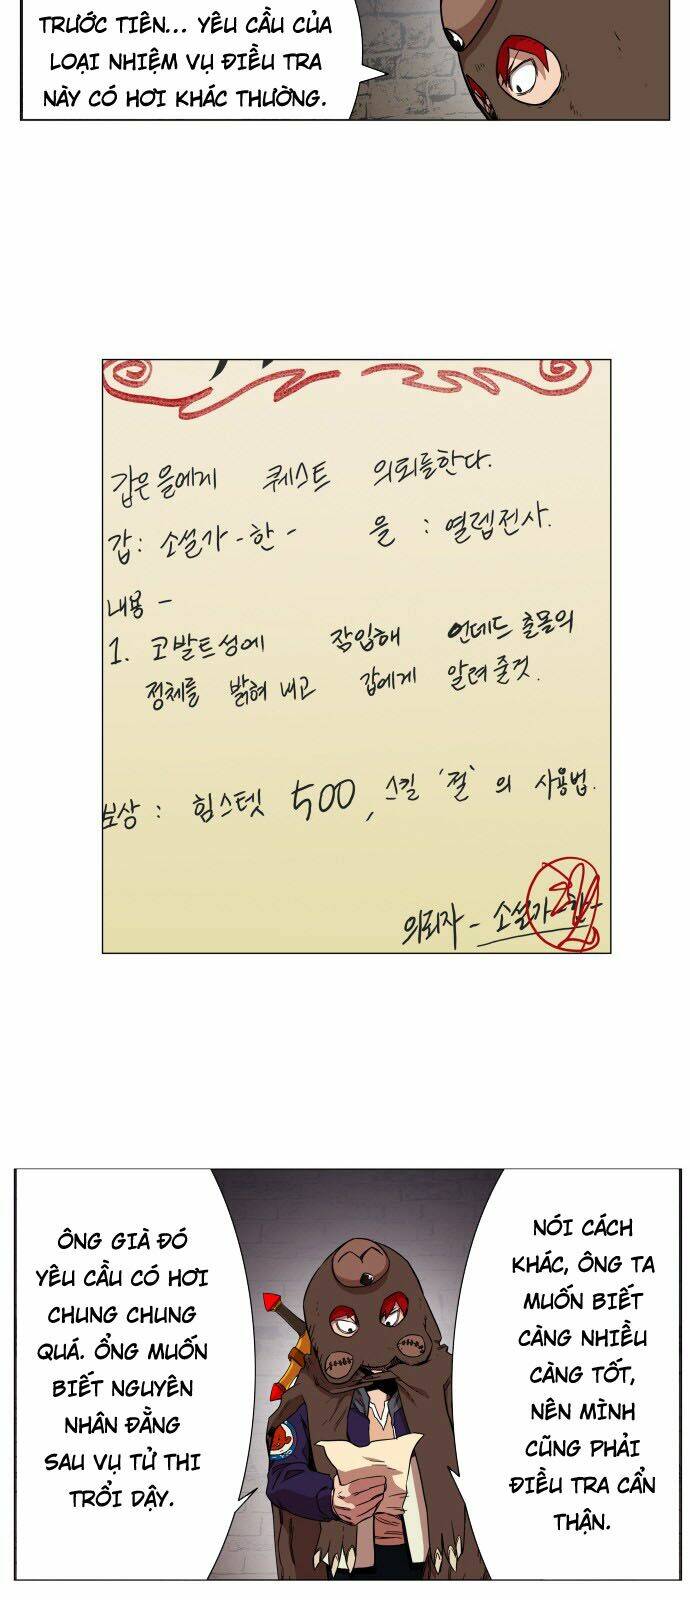 TRƯỚC TIÊN... YÊU CẦU CỦA
LOẠI NHIỆM VỤ ĐIỀU TRA
NÀY CÓ HƠI KHÁC THƯỜNG.
갑은 을에게 퀘스트 의뢰를한다.
갑: 소설가 -한- 을 : 열렙전사.
내용 -
1. 코발트성에 잠입해 언데드 출몰의
정체를 밝혀 내고 갑에게 알려 줄것.
보상 : 힘스텟 500, 스킬 '절'의 사용법.
의뢰자 - 소설가 -한-
ÔNG GIÀ ĐÓ
YÊU CẦU CÓ HƠI
CHUNG CHUNG
QUÁ. ỔNG MUỐN
BIẾT NGUYÊN
NHÂN ĐẰNG
SAU VỤ TỬ THI
TRỔI DẬY.
NÓI CÁCH
KHÁC, ÔNG TA
MUỐN BIẾT
CÀNG NHIỀU
CÀNG TỐT,
NÊN MÌNH
CŨNG PHẢI
ĐIỀU TRA CẨN
THẬN.